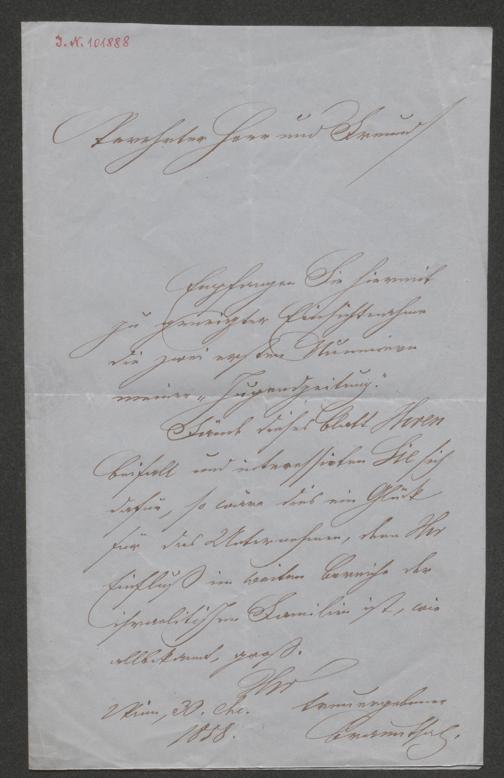 I.N. 101888
Verehrter Herr und Freund!
Empfangen Sie hiermit
zu geneigter Einsichtnahme
die zwei ersten Nummern
meiner „Jugendzeitung“.
Fände dieses Blatt Ihren
Beifall und interessirten Sie sich
dafür, so wäre dies ein Glück
für das Unternehmen, denn Ihr
Einfluß im weiten Bereiche der
israelitischen Familien ist, wie
allbekannt, groß.
Ihr
Wien, 30. treuergebener
1858. Braunthal.